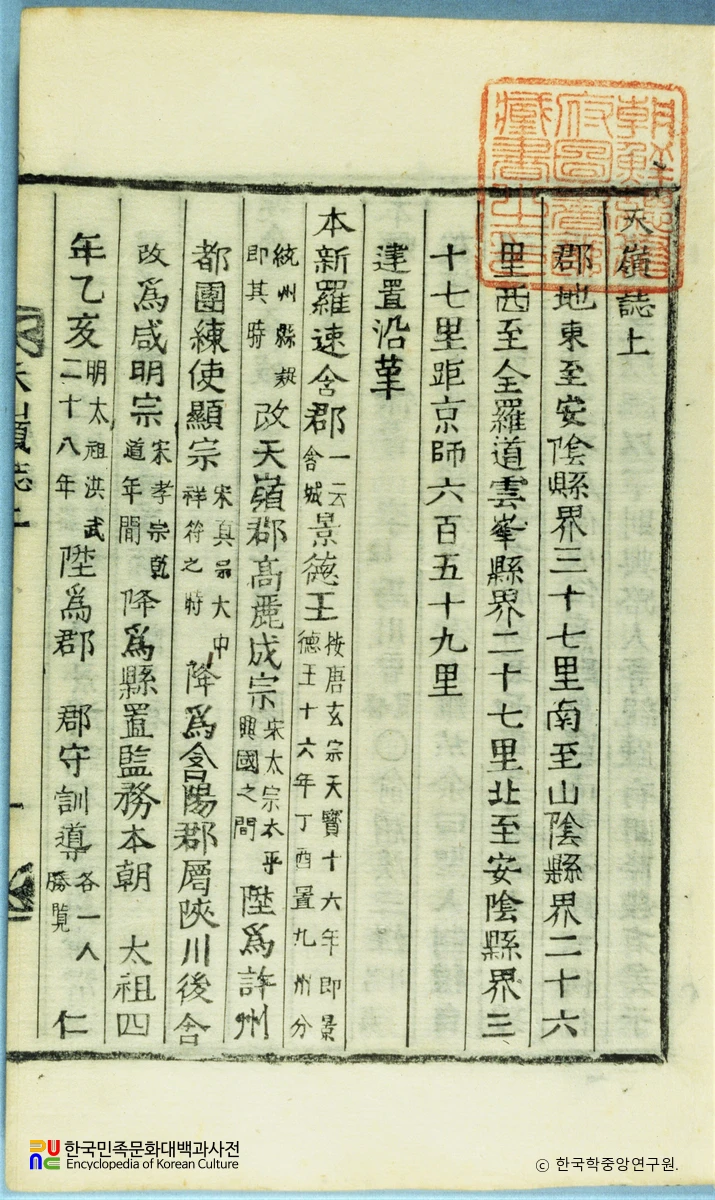 朝鮮總督府圖書館藏書之印
天嶺誌上
郡地東至安陰縣界三十七里南至山陰縣界二十六
里西至全羅道雲峯縣界二十七里北至安陰縣界三
十七里距京師六百五十九里
建置沿革
本新羅速含郡一云含城景德王按唐玄宗天寶十六年即景德王十六年丁酉置九州分
統州縣疑即其時改天嶺郡高麗成宗宋太宗太平興國之間陞爲許州
都團練使顯宗宋真宗大中祥符之時降爲含陽郡屬陜川後含
改爲咸明宗宋孝宗乾道年間降爲縣置監務本朝 太祖四
年乙亥明太祖洪武二十八年陞爲郡 郡守訓導各一人勝覽 仁
天嶺誌上
一
한국민족문화대백과사전
Encyclopedia of Korean Culture
ⓒ 한국학중앙연구원.